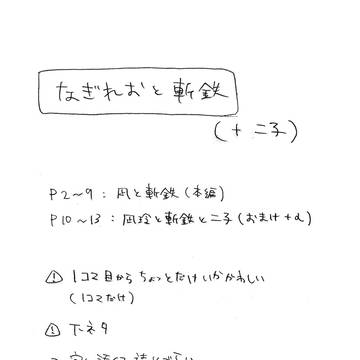 なぎれおと斬鉄
(+ 二子)
P2〜9 : 凪と斬鉄 (本編)
P10〜13 : 凪玲と斬鉄と二子 (おまけ+α)
⚠ 1コマ目からちょっとだけいかがわしい
(1コマだけ)
⚠ 下ネタ